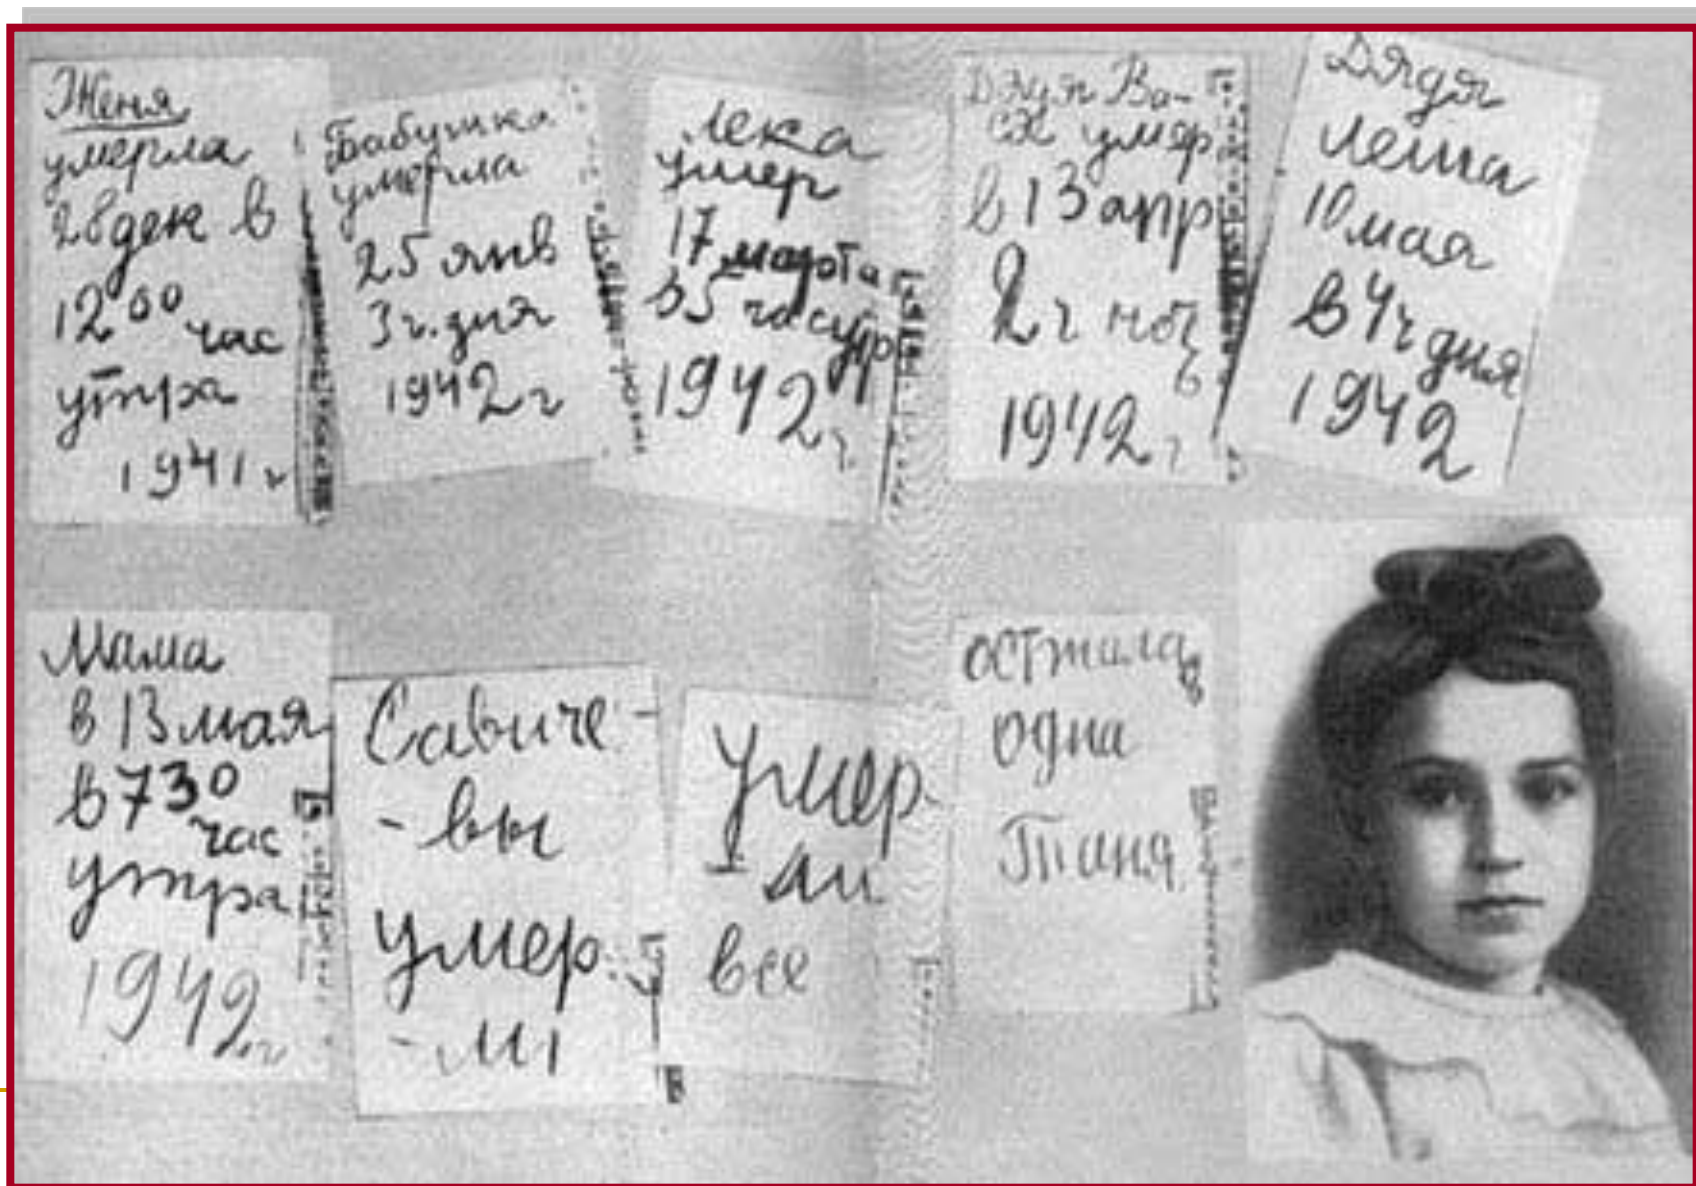 Женя
умерла
28 дек в
12 00 час
утра
1941 г
Бабушка
умерла
25 янв
3 ч. дня
1942 г
Лека
умер
17 марта
в 5 час утр
1942 г.
Дядя Ва-
ся умер
в 13 апр
2 ч ноч
ь
1942 г
Дядя
Леша
10 мая
в 4 ч дня
1942
Мама
в 13 мая
в 7 30
час
утра
1942 г
Савиче-
-вы
умер
-ли
Умер-
-ли
все
осталась
одна
Таня.